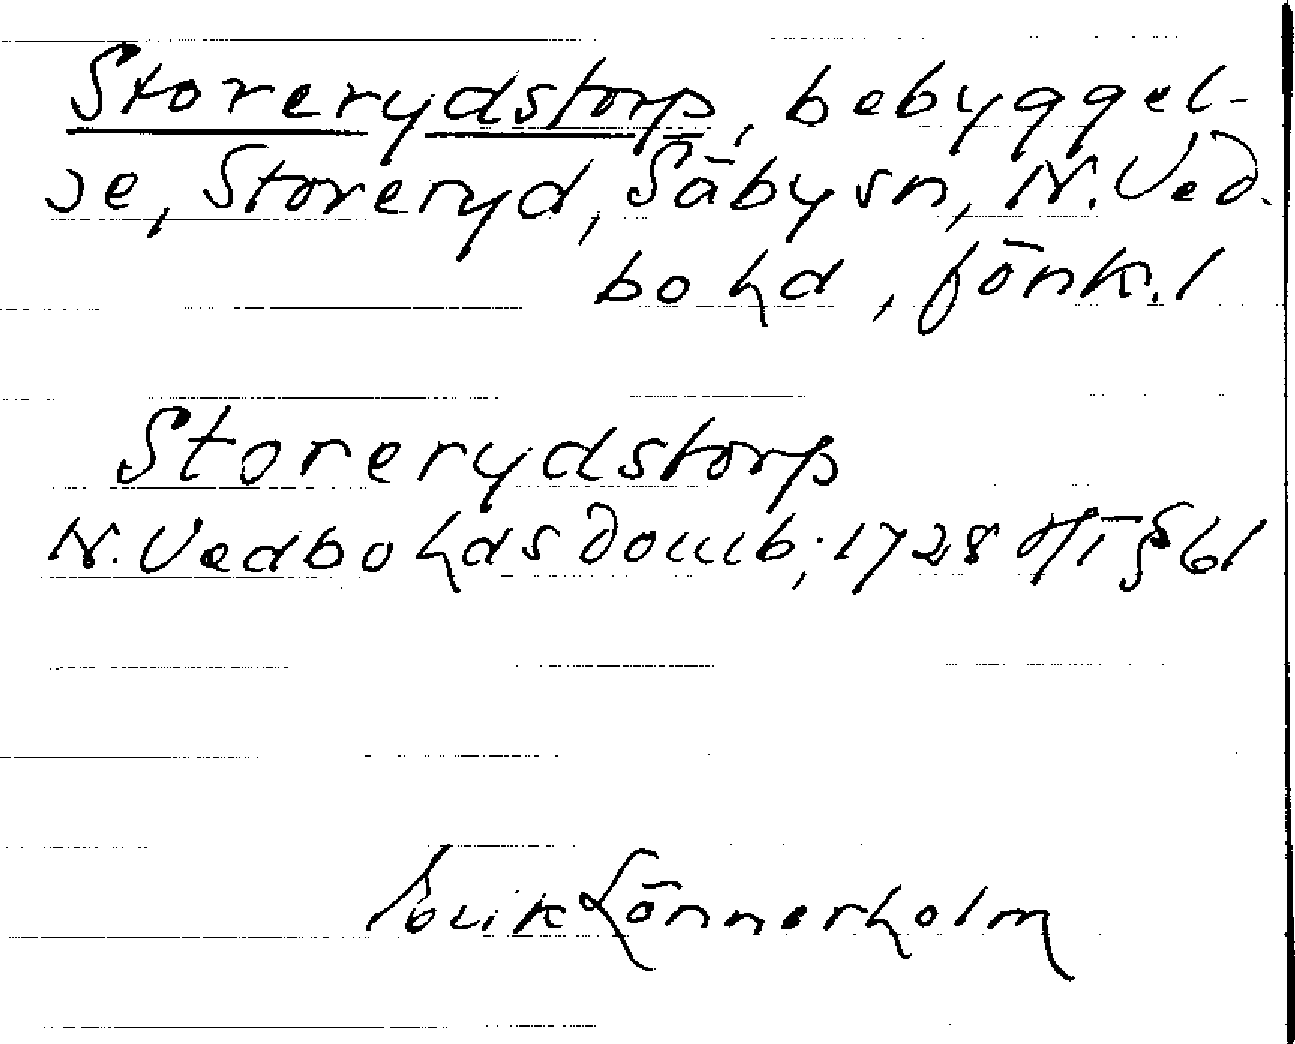 Storerydstorp, bebyggel-
se, Storeryd, Säby sn, N. Ved-
bo hd, Jönk. l
Storerydstorp
N. Vedbo hds domb; 1728 HT § 61
Erik Lönnerholm